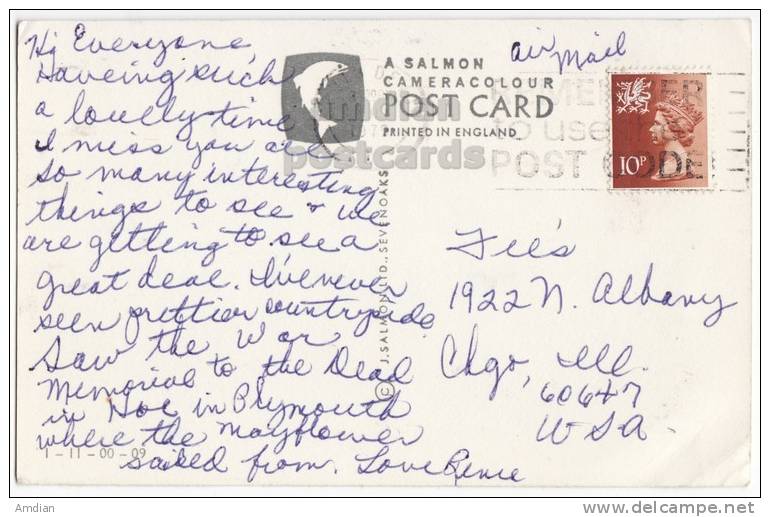 Hi Everyone,
Haveing such
a lovely time
I miss you all
so many interesting
things to see & we
are getting to see a
great deal. I've never
seen prettier countryside
Saw the War
Memorial to the Dead
in Hoe in Plymouth
where the mayflower
sailed from. Love Renie
1-11-00-09
A SALMON
CAMERACOLOUR
POST CARD
PRINTED IN ENGLAND
© J. SALMON LTD., SEVENOAKS
air mail
REMEMBER
to use the
POST CODE
10P
1922 N. Albany
Chgo, Ill.
60647
USA.
postcards
Amdian
delcampe.net